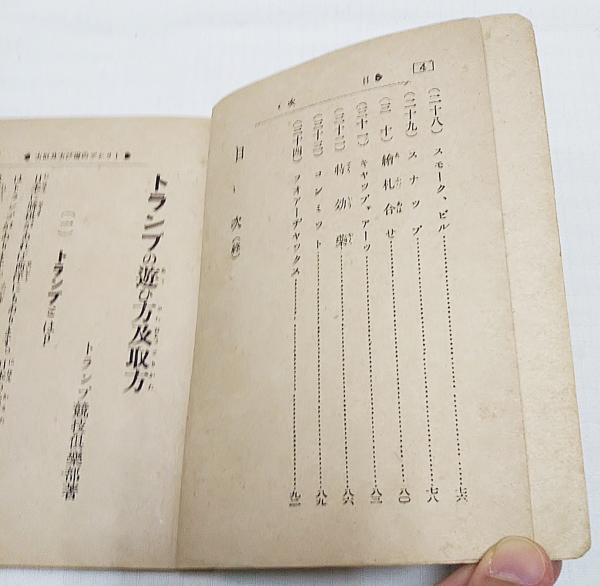 4
目次
(二十八) スモーク、ビル………七六
(二十九) スナップ………七八
(三十) 繪札合せ………八〇
(三十一) キャップ、アーツ………八三
(三十二) 特効藥………八六
(三十三) コンミット………八九
(三十四) フオアーヂャックス………九二
目次(終)
方取及方び遊のプンラト
トランプの遊び方及取方
トランプ競技倶樂部著
(一) トランプとは